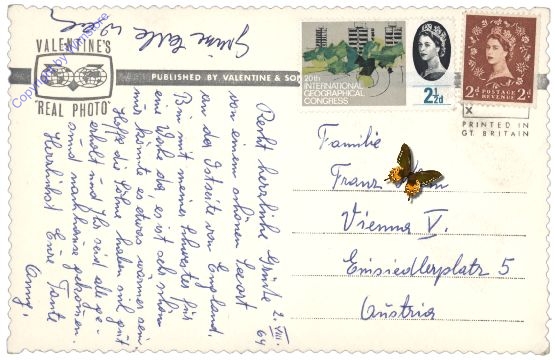 Grüsse Tante
VALENTINE'S
"REAL PHOTO"
PUBLISHED BY VALENTINE & SON
20th
INTERNATIONAL
GEOGRAPHICAL
CONGRESS
2½d
2d POSTAGE 2d
REVENUE
PRINTED IN
GT. BRITAIN
Copyright by
2. VIII. 64
Recht herzliche Grüße
von einem schönen Seeort
an der Ostseite von England.
Bin mit meiner Schwester für
eine Woche da, es ist sehr schön
nur könnte es etwas wärmer sein.
Hoffe die Söhne haben sich gut
erholt und Ihr seid alle ge-
sund nachhause gekommen.
Herzlichst Eure Tante
Anny.
Familie
Franz
Vienna V.
Einsiedlerplatz 5
Austria